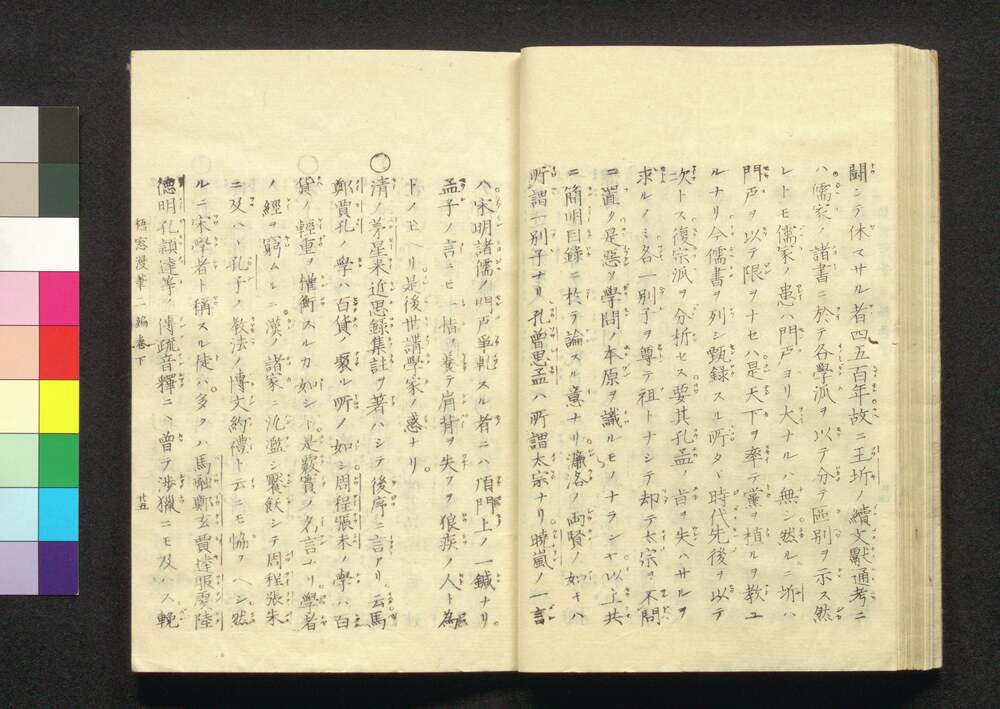 鬪シテ休マサル者四五百年故ニ王圻ノ續文獻通考ニ
ハ儒家ノ諸書ニ於テ各學派ヲ以テ分テ區別ヲ示ス然
レトモ儒家ノ患ハ門戸ヨリ大ナルハ無シ然ルニ圻ハ
門戸ヲ以テ限ヲナセハ是天下ヲ率テ黨ヲ植ルヲ教ユ
ルナリ今儒書ヲ列シ甄錄スル所タヽ時代先後ヲ以テ
次トス復宗派ヲ分析セス要其孔孟ノ旨ヲ失ハサルヲ
求ルノミ名一別子ヲ尊テ祖トナシテ却テ太宗ヲ不問
ニ置ク是惡ソ學問ノ本原ヲ識ルモノナランヤ以上共
ニ簡明目錄ニ於テ論スル意ナリ濂洛ノ両賢ノ如キハ
所謂一別子ナリ孔曾思孟ハ所謂太宗ナリ曉嵐ノ一言
ハ宋明諸儒ノ門戸爭軋スル者ニハ頂門上ノ一鍼ナリ
孟子ノ言ニモ一指ヲ養テ肩背ヲ失フヲ狼疾ノ人ト為
トノ玉ヘリ是後世講學家ノ惑ナリ
○清ノ茅星來近思錄集註ヲ著ハシテ後序ニ言アリ云馬
鄭賈孔ノ學ハ百貨ノ聚ル所ノ如シ周程張朱ノ學ハ百
貨ノ輕重ヲ權衡スルカ如シト是覈實ノ名言ナリ學者
ノ經ヲ窮ムルニ漢ノ諸家ニ沉濫シ饜飫シテ周程張朱
ニ及ハヽ孔子ノ教法ノ博文約禮ト云ニモ恊フヘシ然
ルニ宋學者ト稱スル徒ハ多クハ馬融鄭玄賈逵服虔陸
德明孔穎達等ノ傳疏音釋ニハ曾テ渉獵ニモ及ハス輓
梧窓漫筆二編巻下
廿五